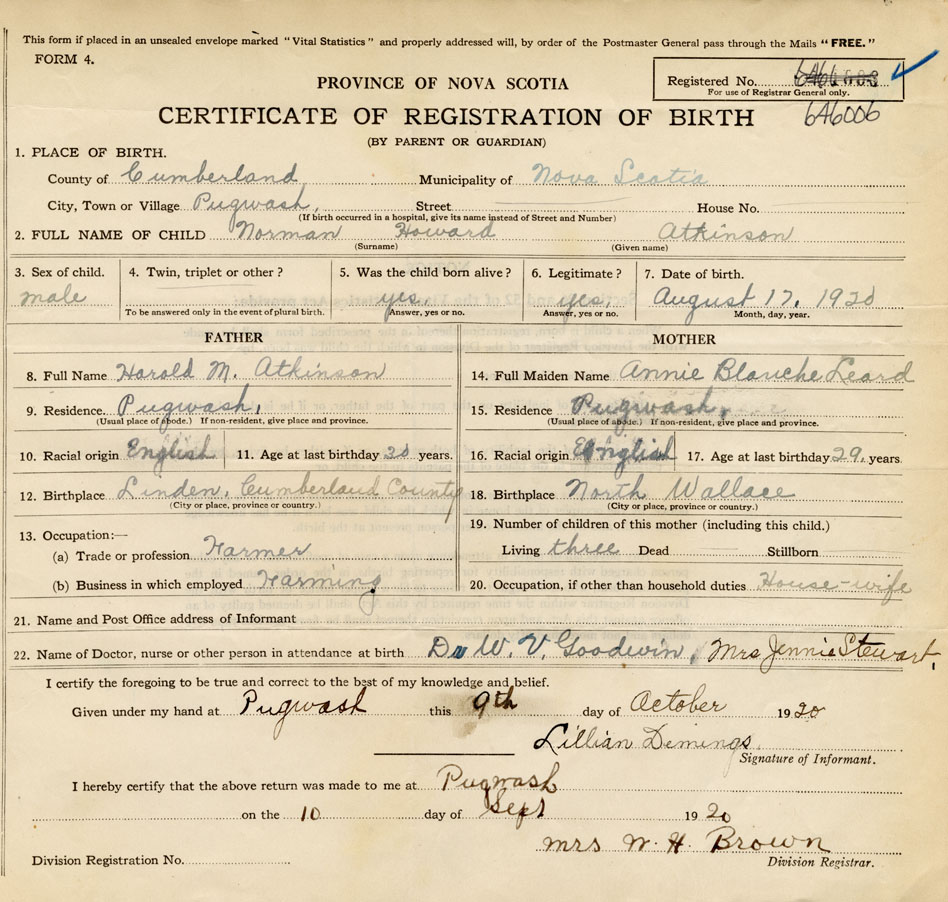 This form if placed in an unsealed envelope marked "Vital Statistics" and properly addressed will, by order of the Postmaster General pass through the Mails "FREE."
FORM 4.
PROVINCE OF NOVA SCOTIA
Registered No.
For use of Registrar General only.
CERTIFICATE OF REGISTRATION OF BIRTH 6A6006
(BY PARENT OR GUARDIAN)
1. PLACE OF BIRTH.
County of Cumberland Municipality of Nova Scotia
City, Town or Village Pugwash, Street House No.
(If birth occurred in a hospital, give its name instead of Street and Number)
2. FULL NAME OF CHILD Norman Howard Atkinson
(Surname) (Given name)
3. Sex of child. 4. Twin, triplet or other? 5. Was the child born alive? 6. Legitimate? 7. Date of birth.
male yes, yes, August 17, 1920
To be answered only in the event of plural birth. Answer, yes or no. Answer, yes or no. Month, day, year.
FATHER MOTHER
8. Full Name Harold M. Atkinson 14. Full Maiden Name Annie Blanche Leard
9. Residence. Pugwash, 15. Residence Pugwash,
(Usual place of abode.) If non-resident, give place and province. (Usual place of abode.) If non-resident, give place and province.
10. Racial origin English 11. Age at last birthday years. 16. Racial origin English 17. Age at last birthday 29, years.
12. Birthplace Linden, Cumberland County 18. Birthplace North Wallace
(City or place, province or country.) (City or place, province or country.)
13. Occupation:— 19. Number of children of this mother (including this child.)
(a) Trade or profession Farmer Living three Dead Stillborn
(b) Business in which employed Farming 20. Occupation, if other than household duties House-wife
21. Name and Post Office address of Informant
22. Name of Doctor, nurse or other person in attendance at birth Dr W. V. Goodwin, Mrs Jennie Stewart,
I certify the foregoing to be true and correct to the best of my knowledge and belief.
Given under my hand at Pugwash this 9th day of October 1920
Lillian Demings
Signature of Informant.
I hereby certify that the above return was made to me at Pugwash
on the 10 day of Sept 1920
mrs W. H. Brown
Division Registration No. Division Registrar.